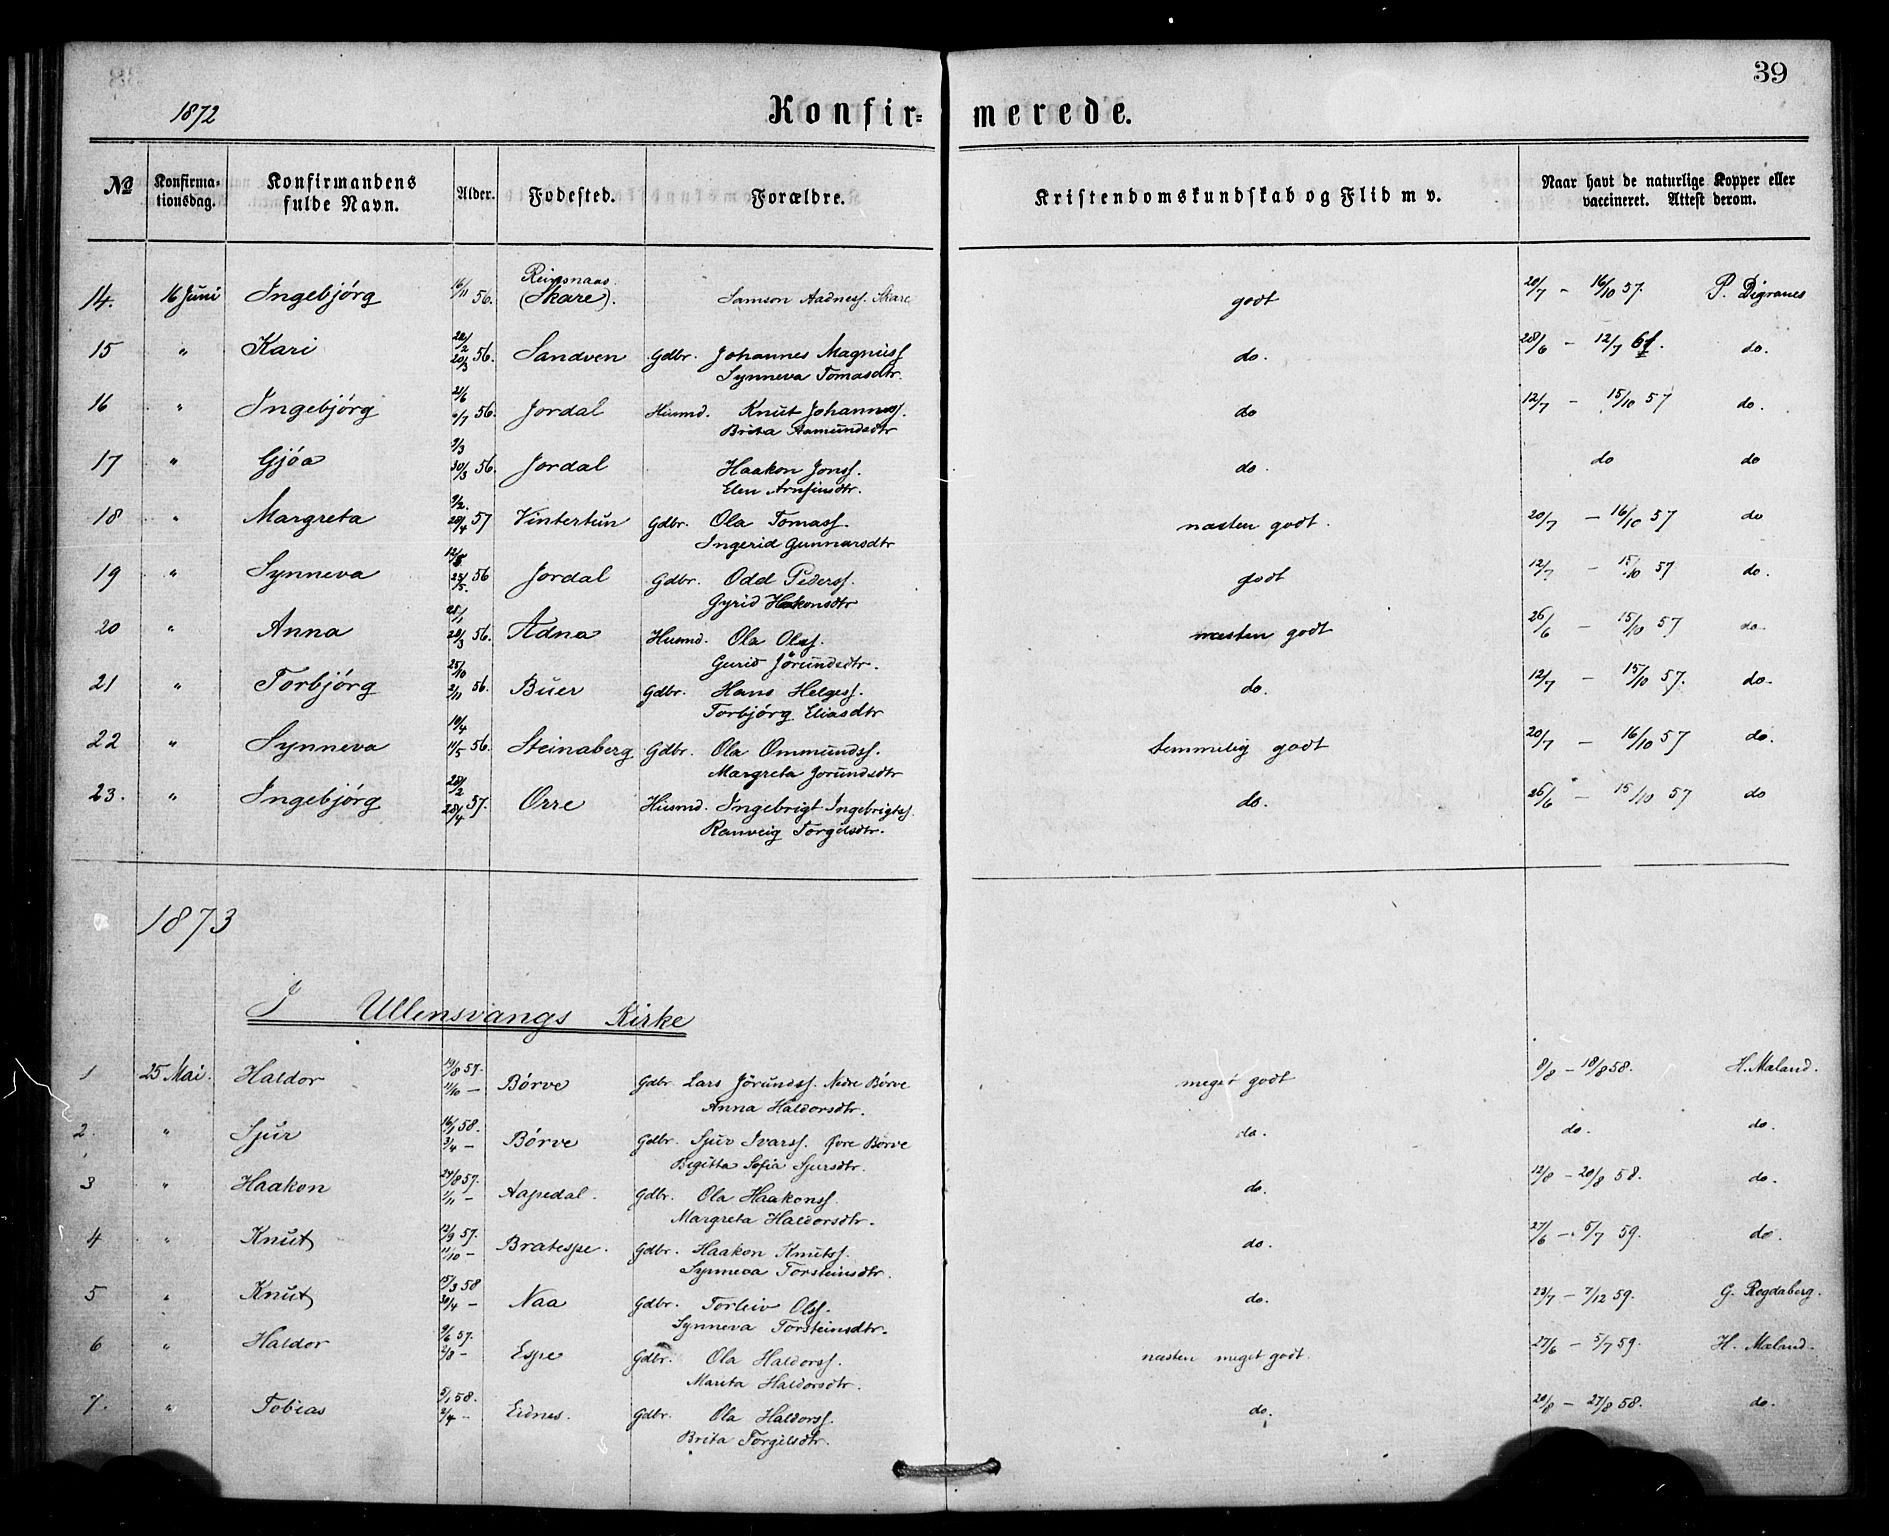 39
1872
Konfir= merede.
№ Konfirma-tionsdag. Konfirmandens fulde Navn. Alder. Fødested. Forældre. Kristendomskundskab og Flid m v. Naar havt de naturlige Kopper eller vaccineret. Attest derom.
Reinsnaas
14. 16 Juni Ingebjörg 16/11 56. (Skare). Samson Aadness. Skare godt 20/7 - 16/10 57. P. Digranes
15 " Kari 20/3 56. Sandven Gdbr. Johannes Magnuss. do. 28/6 - 12/7 61. do.
Synneva Tomasdtr.
16 " Ingebjörg 21/6 /7 56. Jordal Husmd. Knut Johanness. do 12/7 - 15/10 57 do.
Brita Aamundsdtr
17 " Gjöa 9/3 30/3 56. Jordal Haakon Jonss. do. do do
Elen Arnfinsdtr.
18 " Margreta 9/2. 28/4 57 Vintertun Gdbr. Ola Tomass. næsten godt. 20/7 - 16/10 57 do
Ingerid Gunnarsdtr
19 " Synneva 12/5 25/5. 56 Jordal Gdbr. Odd Pederss. godt 12/7 - 15/10 57 do.
Gyrid Hakonsdtr
20 " Anna 25/1 20/3 56. Ädna Husmd. Ola Olss. næsten godt 26/6 - 15/10 57 do
Gurid Jörundsdtr.
21 " Torbjörg 25/10 2/11 56. Buer Gdbr. Hans Helgess. do. 12/7 - 15/10 57. do.
Torbjörg Eliasdtr
22 " Synneva 10/4 11/5 56. Steinaberg Gdbr. Ola Ommundss. temmelig godt 20/7 - 16/10 57 do.
Margreta Jorundsdtr
23. " Ingebjörg 25/2 28/4 57. Orre Husmd. Ingebrigt Ingebrigtss. do. 26/6 - 15/10 57 do
Ranveig Torgilsdtr.
1873
I Ullensvangs Kirke
1 25 Mai. Haldor 19/8 57. 11/10 - Börve Gdbr. Lars Jörundss. Nedre Börve meget godt 8/8 - 18/8 58. H. Mæland.
Anna Haldorsdtr.
2. " Sjur 16/1 58. 3/4 - Börve Gdbr. Sjur Ivarss. Övre Börve do. do. do.
Birgitta Sofia Sjursdtr.
3 " Haakon 24/8 57. 1/11 - Aapedal. Gdbr. Ola Haakonss. do. 12/8 - 20/8 58. do.
Margreta Haldorsdtr.
4 " Knut 12/9 57. 11/10 - Bratespe. Gdbr. Haakon Knutss. do. 27/6 - 5/7 59. do.
Synneva Torsteinsdtr.
5 " Knut 15/3 58 30/4 - Naa Gdbr. Torleiv Olss. do. 23/7 - 7/12 59. G. Regdaberg.
Synneva Torsteinsdtr.
6 " Haldor 9/6 57. 2/8 - Espe Gdbr. Ola Haldorss. næsten meget godt. 27/6 - 5/7 59. H. Mæland.
Marita Haldorsdtr.
7. " Tobias 5/1 58. 2/4 - Eidnes. Gdbr. Ola Haldorss. do. 20/8 - 27/8 58. do.
Brita Torgilsdtr.